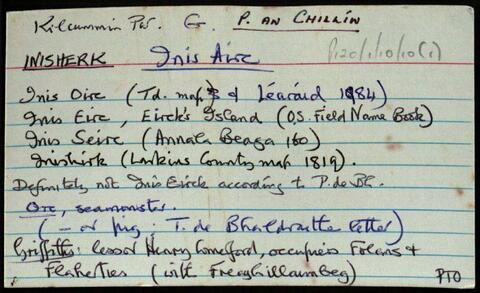 Kilcummin Par. G. P. AN CHILLÍN
P120/1/10/10(1)
INISHERK Inis Airc
Inis Oirc (T.d. map & Léaráid 1984)
Inis Eirc, Eirck's Island (OS. Field Name Book)
Inis Seirc (Annála Beaga 160)
Inishirk (Larkins County map 1819).
Definitely not Inis Eirck according to P. de Bh.
Orc, seamonster.
(— or pig, T. de Bhaldraithe letter)
Griffiths: lessor Henry Comerford, occupiers Folans &
Flaherties (with Freaghillaunbeg)
PTO